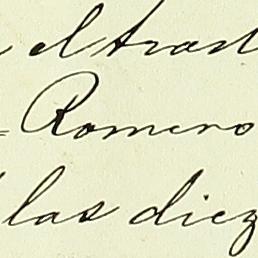 el trast
Romero
las diez